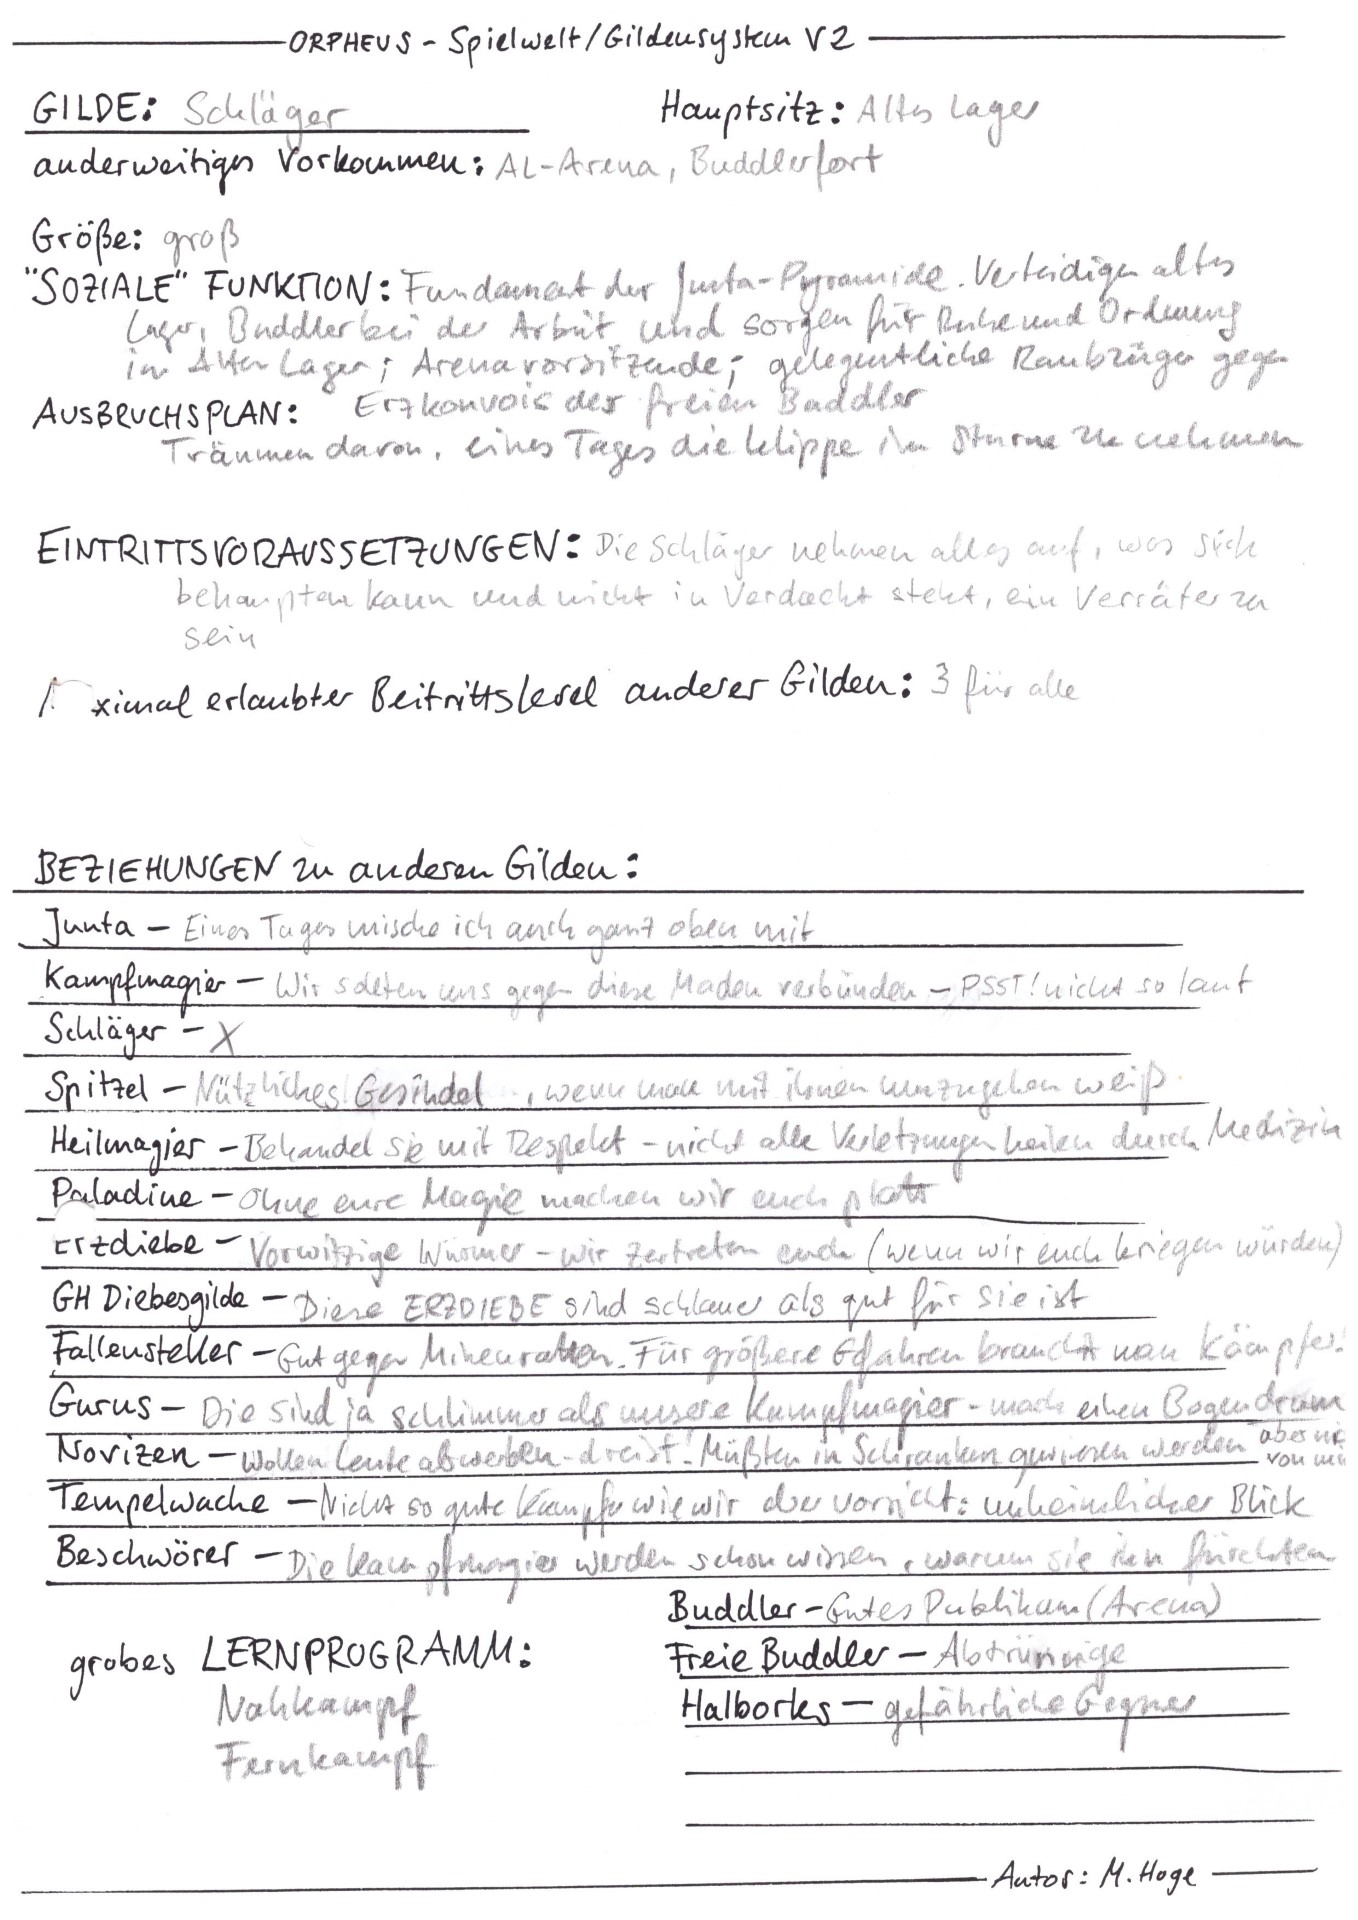 ORPHEUS - Spielwelt/Gildensystem V2
GILDE: Schläger Hauptsitz: Altes Lager
anderweitiges Vorkommen: AL-Arena, Buddlerfort
Größe: groß
"SOZIALE" FUNKTION: Fundament der Junta-Pyramide. Verteidigen altes
Lager, Buddler bei der Arbeit und sorgen für Ruhe und Ordnung
im Alten Lager; Arenavorsitzende; gelegentliche Raubzüge gegen
Erzkonvois der freien Buddler
AUSBRUCHSPLAN:
Träumen davon, eines Tages die Klippe im Sturm zu nehmen
EINTRITTSVORAUSSETZUNGEN: Die Schläger nehmen alles auf, was sich
behaupten kann und nicht in Verdacht steht, ein Verräter zu
sein
ximal erlaubter Beitrittslevel anderer Gilden: 3 für alle
BEZIEHUNGEN zu anderen Gilden:
Junta - Eines Tages mische ich auch ganz oben mit
Kampfmagier - Wir sollten uns gegen diese Maden verbünden - PSST! nicht so laut
Schläger - X
Spitzel - Nützliches Gesindel, wenn man mit ihnen umzugehen weiß
Heilmagier - Behandel sie mit Respekt - nicht alle Verletzungen heilen durch Medizin
Paladine - Ohne eure Magie machen wir euch platt
Erzdiebe - Vorwitzige Würmer - wir zertreten euch (wenn wir euch kriegen würden)
GH Diebesgilde - Diese ERZDIEBE sind schlauer als gut für sie ist
Fallensteller - Gut gegen Minenratten. Für größere Gefahren braucht man Kämpfer!
Gurus - Die sind ja schlimmer als unsere Kampfmagier - mach einen Bogen drum
Novizen - Wollen Leute abwerben - dreist! Müßten in Schranken gewiesen werden aber
von
Tempelwache - Nicht so gute Kämpfer wie wir aber vorsicht: unheimlicher Blick
Beschwörer - Die Kampfmagier werden schon wissen, warum sie ihn fürchten
Buddler - Gutes Publikum (Arena)
grobes LERNPROGRAMM:
Freie Buddler - Abtrünnige
Nahkampf
Halborks - gefährliche Gegner
Fernkampf
Autor: M. Hoge